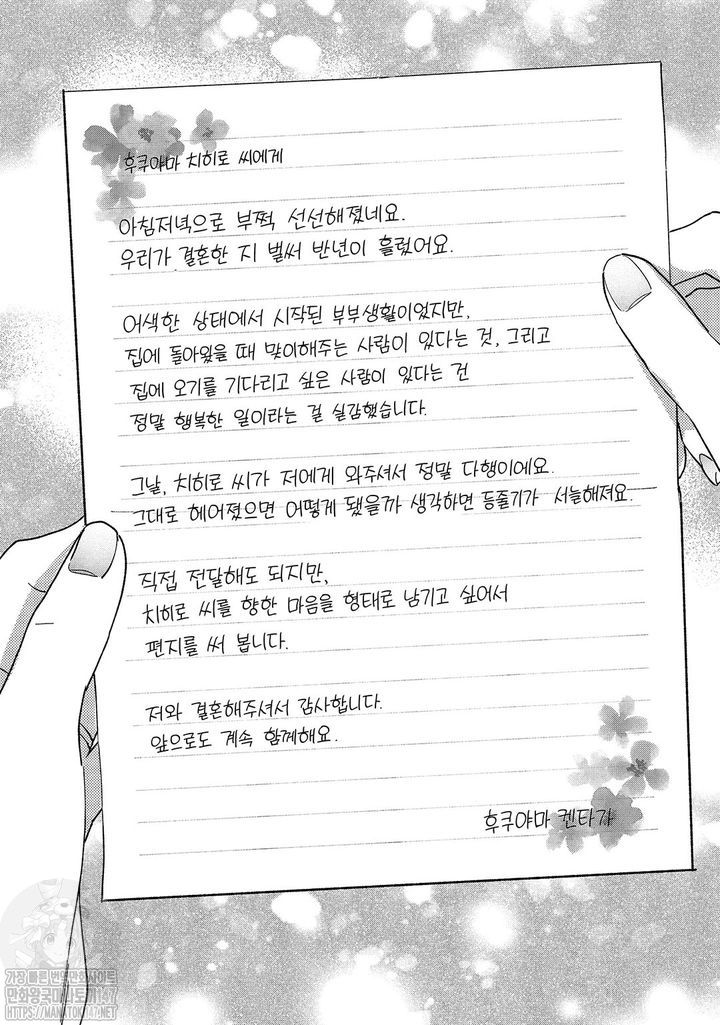 후쿠야마 치히로 씨에게
아침저녁으로 부쩍 선선해졌네요.
우리가 결혼한 지 벌써 반년이 흘렀어요.
어색한 상태에서 시작된 부부생활이었지만,
집에 돌아왔을 때 맞이해주는 사람이 있다는 것, 그리고
집에 오기를 기다리고 싶은 사람이 있다는 건
정말 행복한 일이라는 걸 실감했습니다.
그날, 치히로 씨가 저에게 와주셔서 정말 다행이에요.
그대로 헤어졌으면 어떻게 됐을까 생각하면 등줄기가 서늘해져요.
직접 전달해도 되지만,
치히로 씨를 향한 마음을 형태로 남기고 싶어서
편지를 써 봅니다.
저와 결혼해주셔서 감사합니다.
앞으로도 계속 함께해요.
후쿠야마 켄타가
가장 빠른 번역만화사이트
만화왕국마나토끼147
HTTPS://MANATOKI147.NET